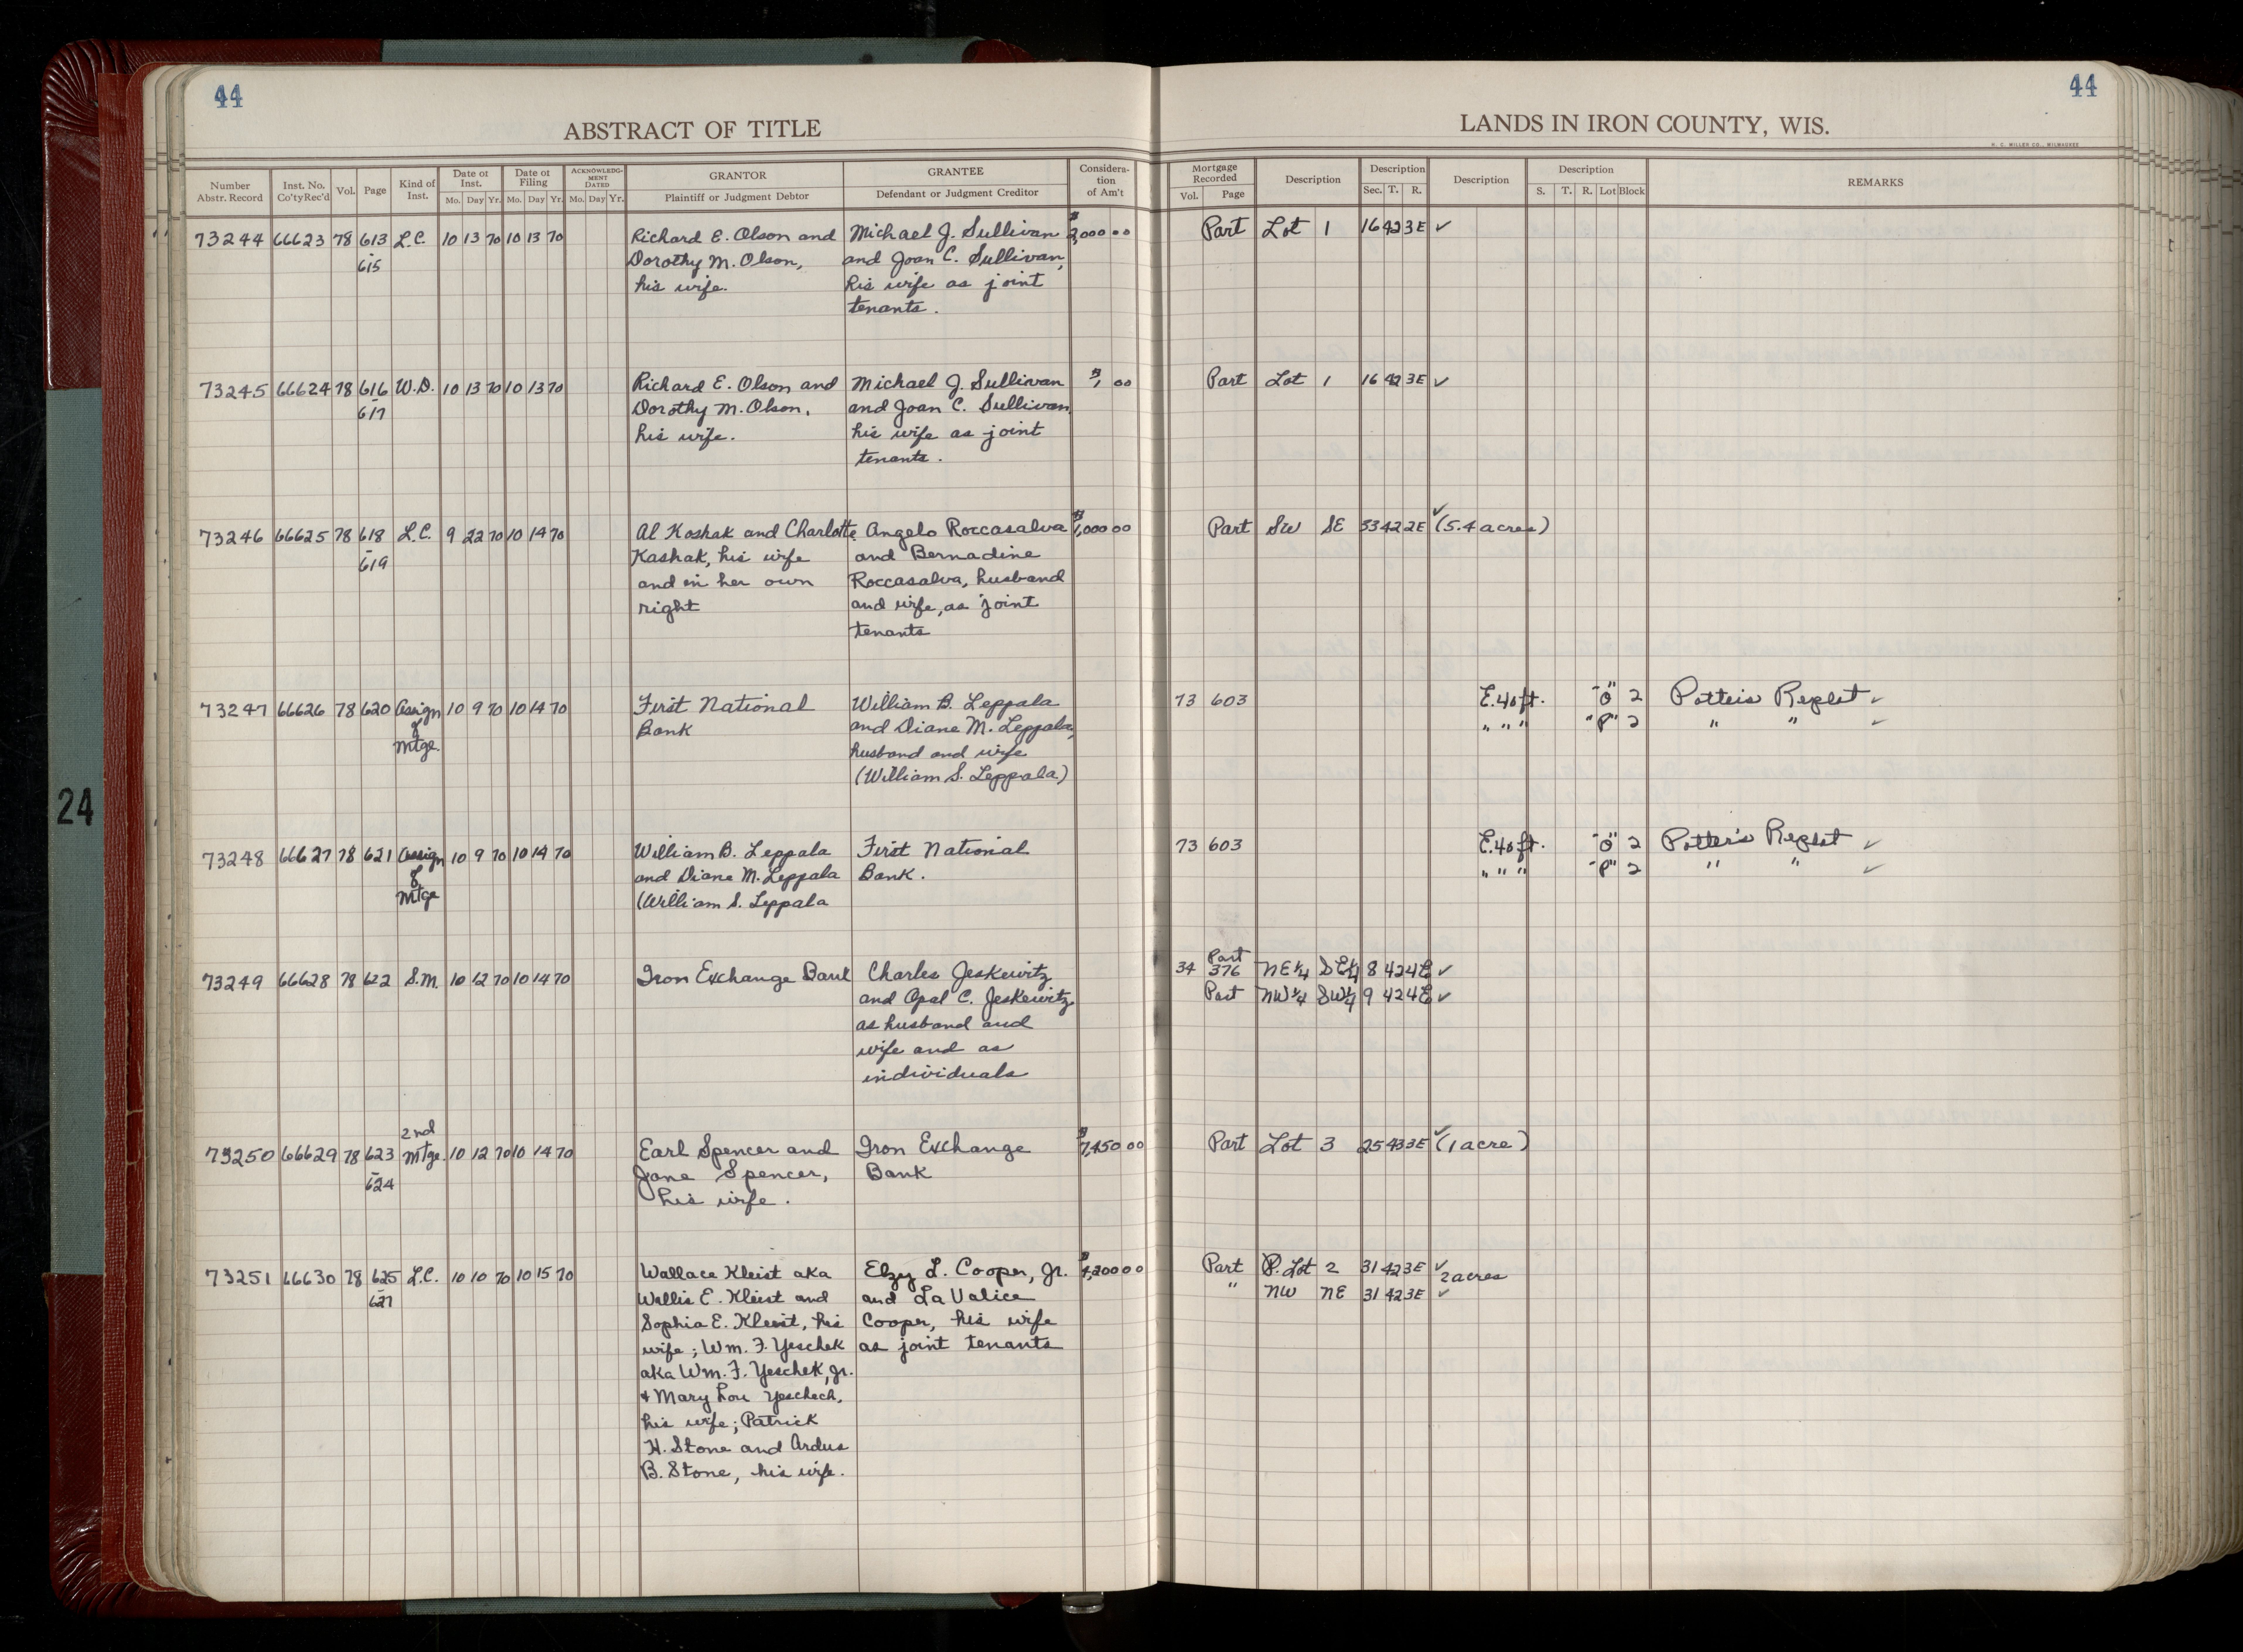 44
44
ABSTRACT OF TITLE
LANDS IN IRON COUNTY, WIS.
H. C. MILLER CO., MILWAUKEE
Number Abstr. Record
Inst. No. Co'ty Rec'd
Vol.
Page
Kind of Inst.
Date of Inst.
Mo. Day Yr.
Date of Filing
Mo. Day Yr.
ACKNOWLEDGMENT DATED
Mo. Day Yr.
GRANTOR
Plaintiff or Judgment Debtor
GRANTEE
Defendant or Judgment Creditor
Consideration of Am't
Mortgage Recorded
Vol. Page
Description
Description
Sec. T. R.
Description
Description
S. T. R. Lot Block
REMARKS
73244 66623 78 613 L.C. 10 13 70 10 13 70 Richard E. Olson and Michael J. Sullivan $2,000 00 Part Lot 1 16 42 3E ✓
- 615 Dorothy M. Olson, and Joan C. Sullivan,
his wife. his wife as joint
tenants.
73245 66624 78 616 W.D. 10 13 70 10 13 70 Richard E. Olson and Michael J. Sullivan $1, 00 Part Lot 1 16 42 3E ✓
- 617 Dorothy M. Olson, and Joan C. Sullivan,
his wife. his wife as joint
tenants.
73246 66625 78 618 L.C. 9 22 70 10 14 70 Al Koshak and Charlotte Angelo Roccasalva $1,000 00 Part SW SE 33 42 2E ✓ (5.4 acres)
- 619 Kashak, his wife and Bernadine
and in her own Roccasalva, husband
right and wife, as joint
tenants
73247 66626 78 620 Assign 10 9 70 10 14 70 First National William B. Leppala 73 603 E. 40 ft. "O" 2 Potter's Replat ✓
of Bank and Diane M. Leppala, " " " "P" 2 " " ✓
Mtge. husband and wife
(William S. Leppala)
73248 66627 78 621 Assign 10 9 70 10 14 70 William B. Leppala First National 73 603 E. 40 ft. "O" 2 Potter's Replat ✓
of and Diane M. Leppala Bank. " " " "P" 2 " " ✓
Mtge (William S. Leppala
73249 66628 78 622 S.M. 10 12 70 10 14 70 Iron Exchange Bank Charles Jeskewitz 34 Part 376 NE¼ SE¼ 8 42 4E ✓
and Opal C. Jeskewitz Part NW¼ SW¼ 9 42 4E ✓
as husband and
wife and as
individuals
73250 66629 78 623 2nd Mtge. 10 12 70 10 14 70 Earl Spencer and Iron Exchange $7,450 00 Part Lot 3 25 43 3E ✓ (1 acre)
- 624 Jane Spencer, Bank
his wife.
73251 66630 78 625 L.C. 10 10 70 10 15 70 Wallace Kleist aka Elzy L. Cooper, Jr. $4,200 00 Part P. Lot 2 31 42 3E ✓ 2 acres
- 627 Wallis E. Kleist and and LaValice " NW NE 31 42 3E ✓
Sophia E. Kleist, his Cooper, his wife
wife; Wm. F. Yeschek as joint tenants
aka Wm. F. Yeschek, Jr.
+ Mary Lou Yescheck,
his wife; Patrick
H. Stone and Ardus
B. Stone, his wife.
24